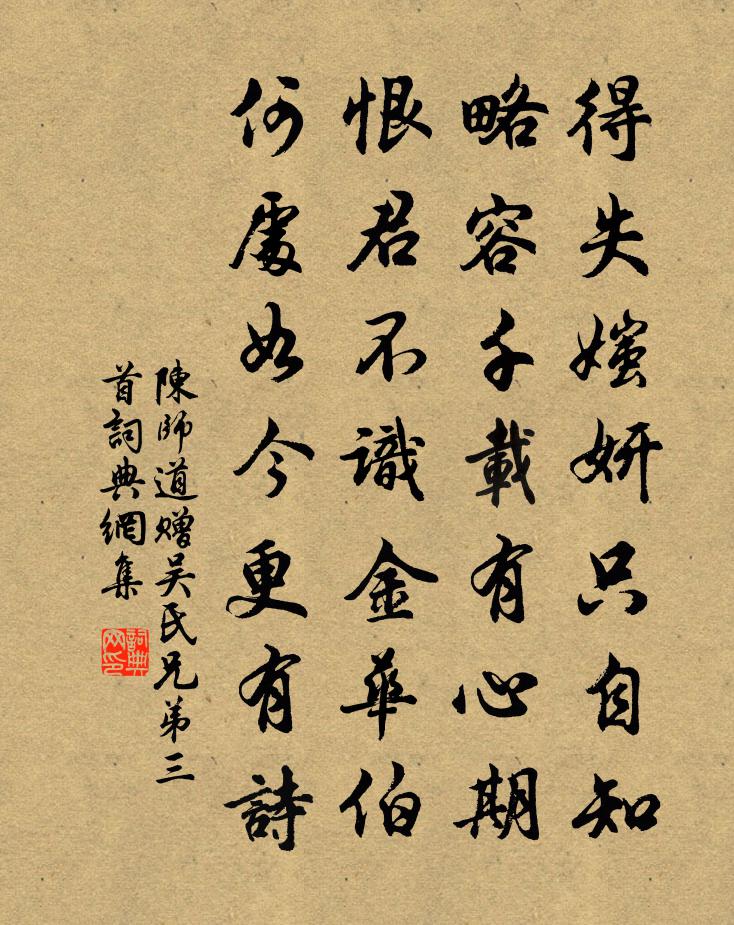 得失媸妍只自知
略容千載有心期
恨君不識金華伯
何處如今更有詩
陳師道赠吴氏兄弟三
首詞典網集
詞典
网印